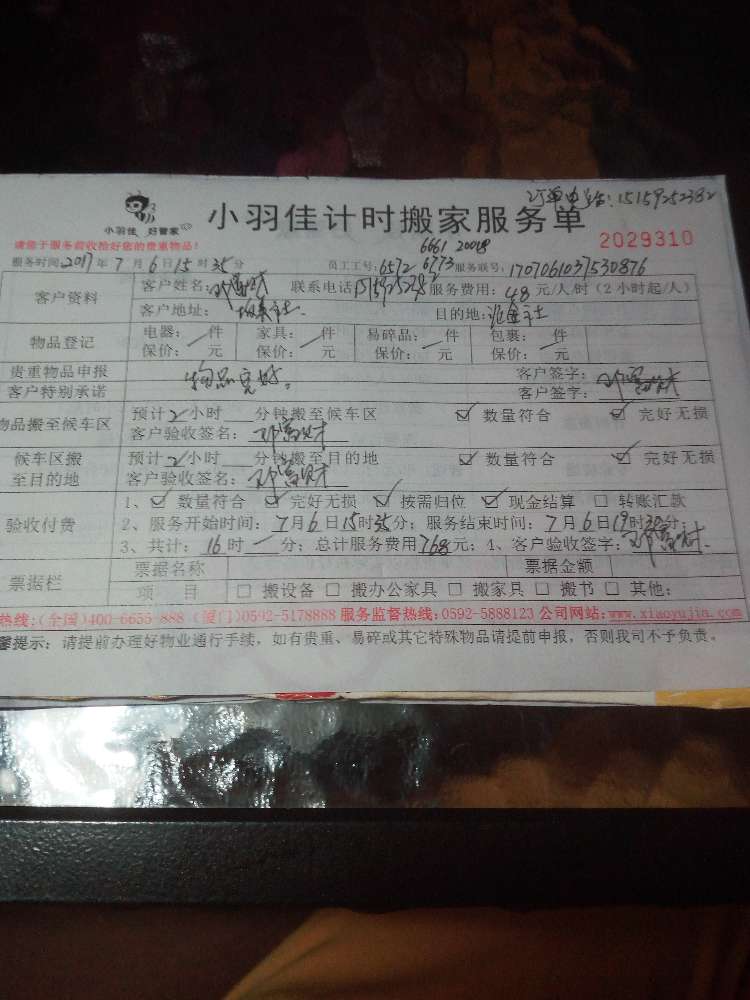 订单电话:15159252382
小羽佳 好管家
小羽佳计时搬家服务单
请您于服务前收拾好您的贵重物品!
6661 20018
2029310
服务时间2017年7月6日15时35分 员工工号:6572 6773 服务联号:1707061037530876
客户资料 客户姓名: 联系电话 服务费用:48元/人/时(2小时起/人)
客户地址: 目的地:
物品登记 电器: 件 家具: 件 易碎品: 件 包裹: 件
保价: 元 保价: 元 保价: 元 保价: 元
贵重物品申报 物品完好。 客户签字:
客户特别承诺 客户签字:邓富财
物品搬至候车区 预计2小时 分钟搬至候车区 ☑数量符合 ☑完好无损
客户验收签名:邓富财
候车区搬至目的地 预计2小时 分钟搬至目的地 ☑数量符合 ☑完好无损
客户验收签名:邓富财
验收付费 1、☑数量符合 ☑完好无损 ☑按需归位 ☑现金结算 □转账汇款
2、服务开始时间:7月6日15时35分;服务结束时间:7月6日19时30分;
3、共计:16时一分;总计服务费用768元;4、客户验收签字:邓富财.
票据栏 票据名称 票据金额
项 目 □搬设备 □搬办公家具 □搬家具 □搬书 □其他:
热线:(全国)400-6655-888 (厦门)0592-5178888 服务监督热线:0592-5888123 公司网站:www.xiaoyujia.com
馨提示:请提前办理好物业通行手续,如有贵重、易碎或其它特殊物品请提前申报,否则我司不予负责。